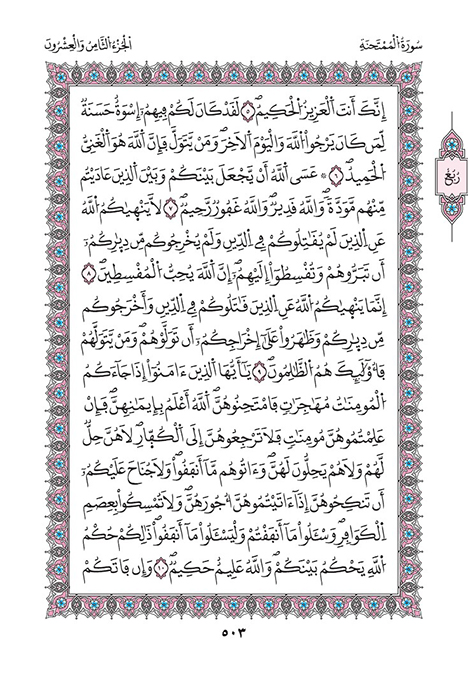 سُورَةُ الْمُمْتَحِنَةِ
الْجُزْءُ الثَّامِنُ وَالْعِشْرُونَ
إِنَّكَ أَنتَ اَ۬لْعَزِيزُ اُ۬لْحَكِيمُۖ ٥ لَقَدْ كَانَ لَكُمْ فِيهِمُۥٓ إِسْوَةٌ حَسَنَةٌ
لِّمَن كَانَ يَرْجُواْ اُ۬للَّهَ وَالْيَوْمَ اَ۬لَاخِرَۖ وَمَنْ يَّتَوَلَّ فَإِنَّ اَ۬للَّهَ هُوَ اَ۬لْغَنِيُّ
اُ۬لْحَمِيدُۖ ٦ ۞ عَسَى اَ۬للَّهُ أَنْ يَّجْعَلَ بَيْنَكُمْ وَبَيْنَ اَ۬لذِينَ عَادَيْتُم
مِّنْهُم مَّوَدَّةٗۖ وَاللَّهُ قَدِيرٞۖ وَاللَّهُ غَفُورٞ رَّحِيمٞۖ ٧ لَّا يَنْهَيٰكُمُ اُ۬للَّهُ
عَنِ اِ۬لذِينَ لَمْ يُقَٰتِلُوكُمْ فِے اِ۬لدِّينِ وَلَمْ يُخْرِجُوكُم مِّن دِيٰ۪رِكُمُۥٓ
أَن تَبَرُّوهُمْ وَتُقْسِطُوٓاْ إِلَيْهِمُۥٓۖ إِنَّ اَ۬للَّهَ يُحِبُّ اُ۬لْمُقْسِطِينَۖ ٨
إِنَّمَا يَنْهَيٰكُمُ اُ۬للَّهُ عَنِ اِ۬لذِينَ قَٰتَلُوكُمْ فِے اِ۬لدِّينِ وَأَخْرَجُوكُم
مِّن دِيٰ۪رِكُمْ وَظَٰهَرُواْ عَلَىٰٓ إِخْرَاجِكُمُۥٓ أَن تَوَلَّوْهُمْۖ وَمَنْ يَّتَوَلَّهُمْ
فَأُوْلَٰٓئِكَ هُمُ اُ۬لظَّٰلِمُونَۖ ٩ يَٰٓأَيُّهَا اَ۬لذِينَ ءَامَنُوٓاْ إِذَا جَآءَكُمُ
اُ۬لْمُومِنَٰتُ مُهَٰجِرَٰتٖ فَامْتَحِنُوهُنَّۖ اَ۬للَّهُ أَعْلَمُ بِإِيمَٰنِهِنَّۖ فَإِنْ
عَلِمْتُمُوهُنَّ مُومِنَٰتٖ فَلَا تَرْجِعُوهُنَّ إِلَى اَ۬لْكُفّ۪ارِۖ لَا هُنَّ حِلّٞ
لَّهُمْ وَلَا هُمْ يَحِلُّونَ لَهُنَّۖ وَءَاتُوهُم مَّآ أَنفَقُواْۖ وَلَا جُنَاحَ عَلَيْكُمُۥٓ
أَن تَنكِحُوهُنَّ إِذَآ ءَاتَيْتُمُوهُنَّ أُجُورَهُنَّۖ وَلَا تُمْسِكُواْ بِعِصَمِ
اِ۬لْكَوَافِرِۖ وَسْـَٔلُواْ مَآ أَنفَقْتُمْ وَلْيَسْـَٔلُواْ مَآ أَنفَقُواْۖ ذَٰلِكُمْ حُكْمُ
اُ۬للَّهِ يَحْكُمُ بَيْنَكُمْۖ وَاللَّهُ عَلِيمٌ حَكِيمٞۖ ١٠ وَإِن فَاتَكُمْ
رُبْعُ
٥٠٣